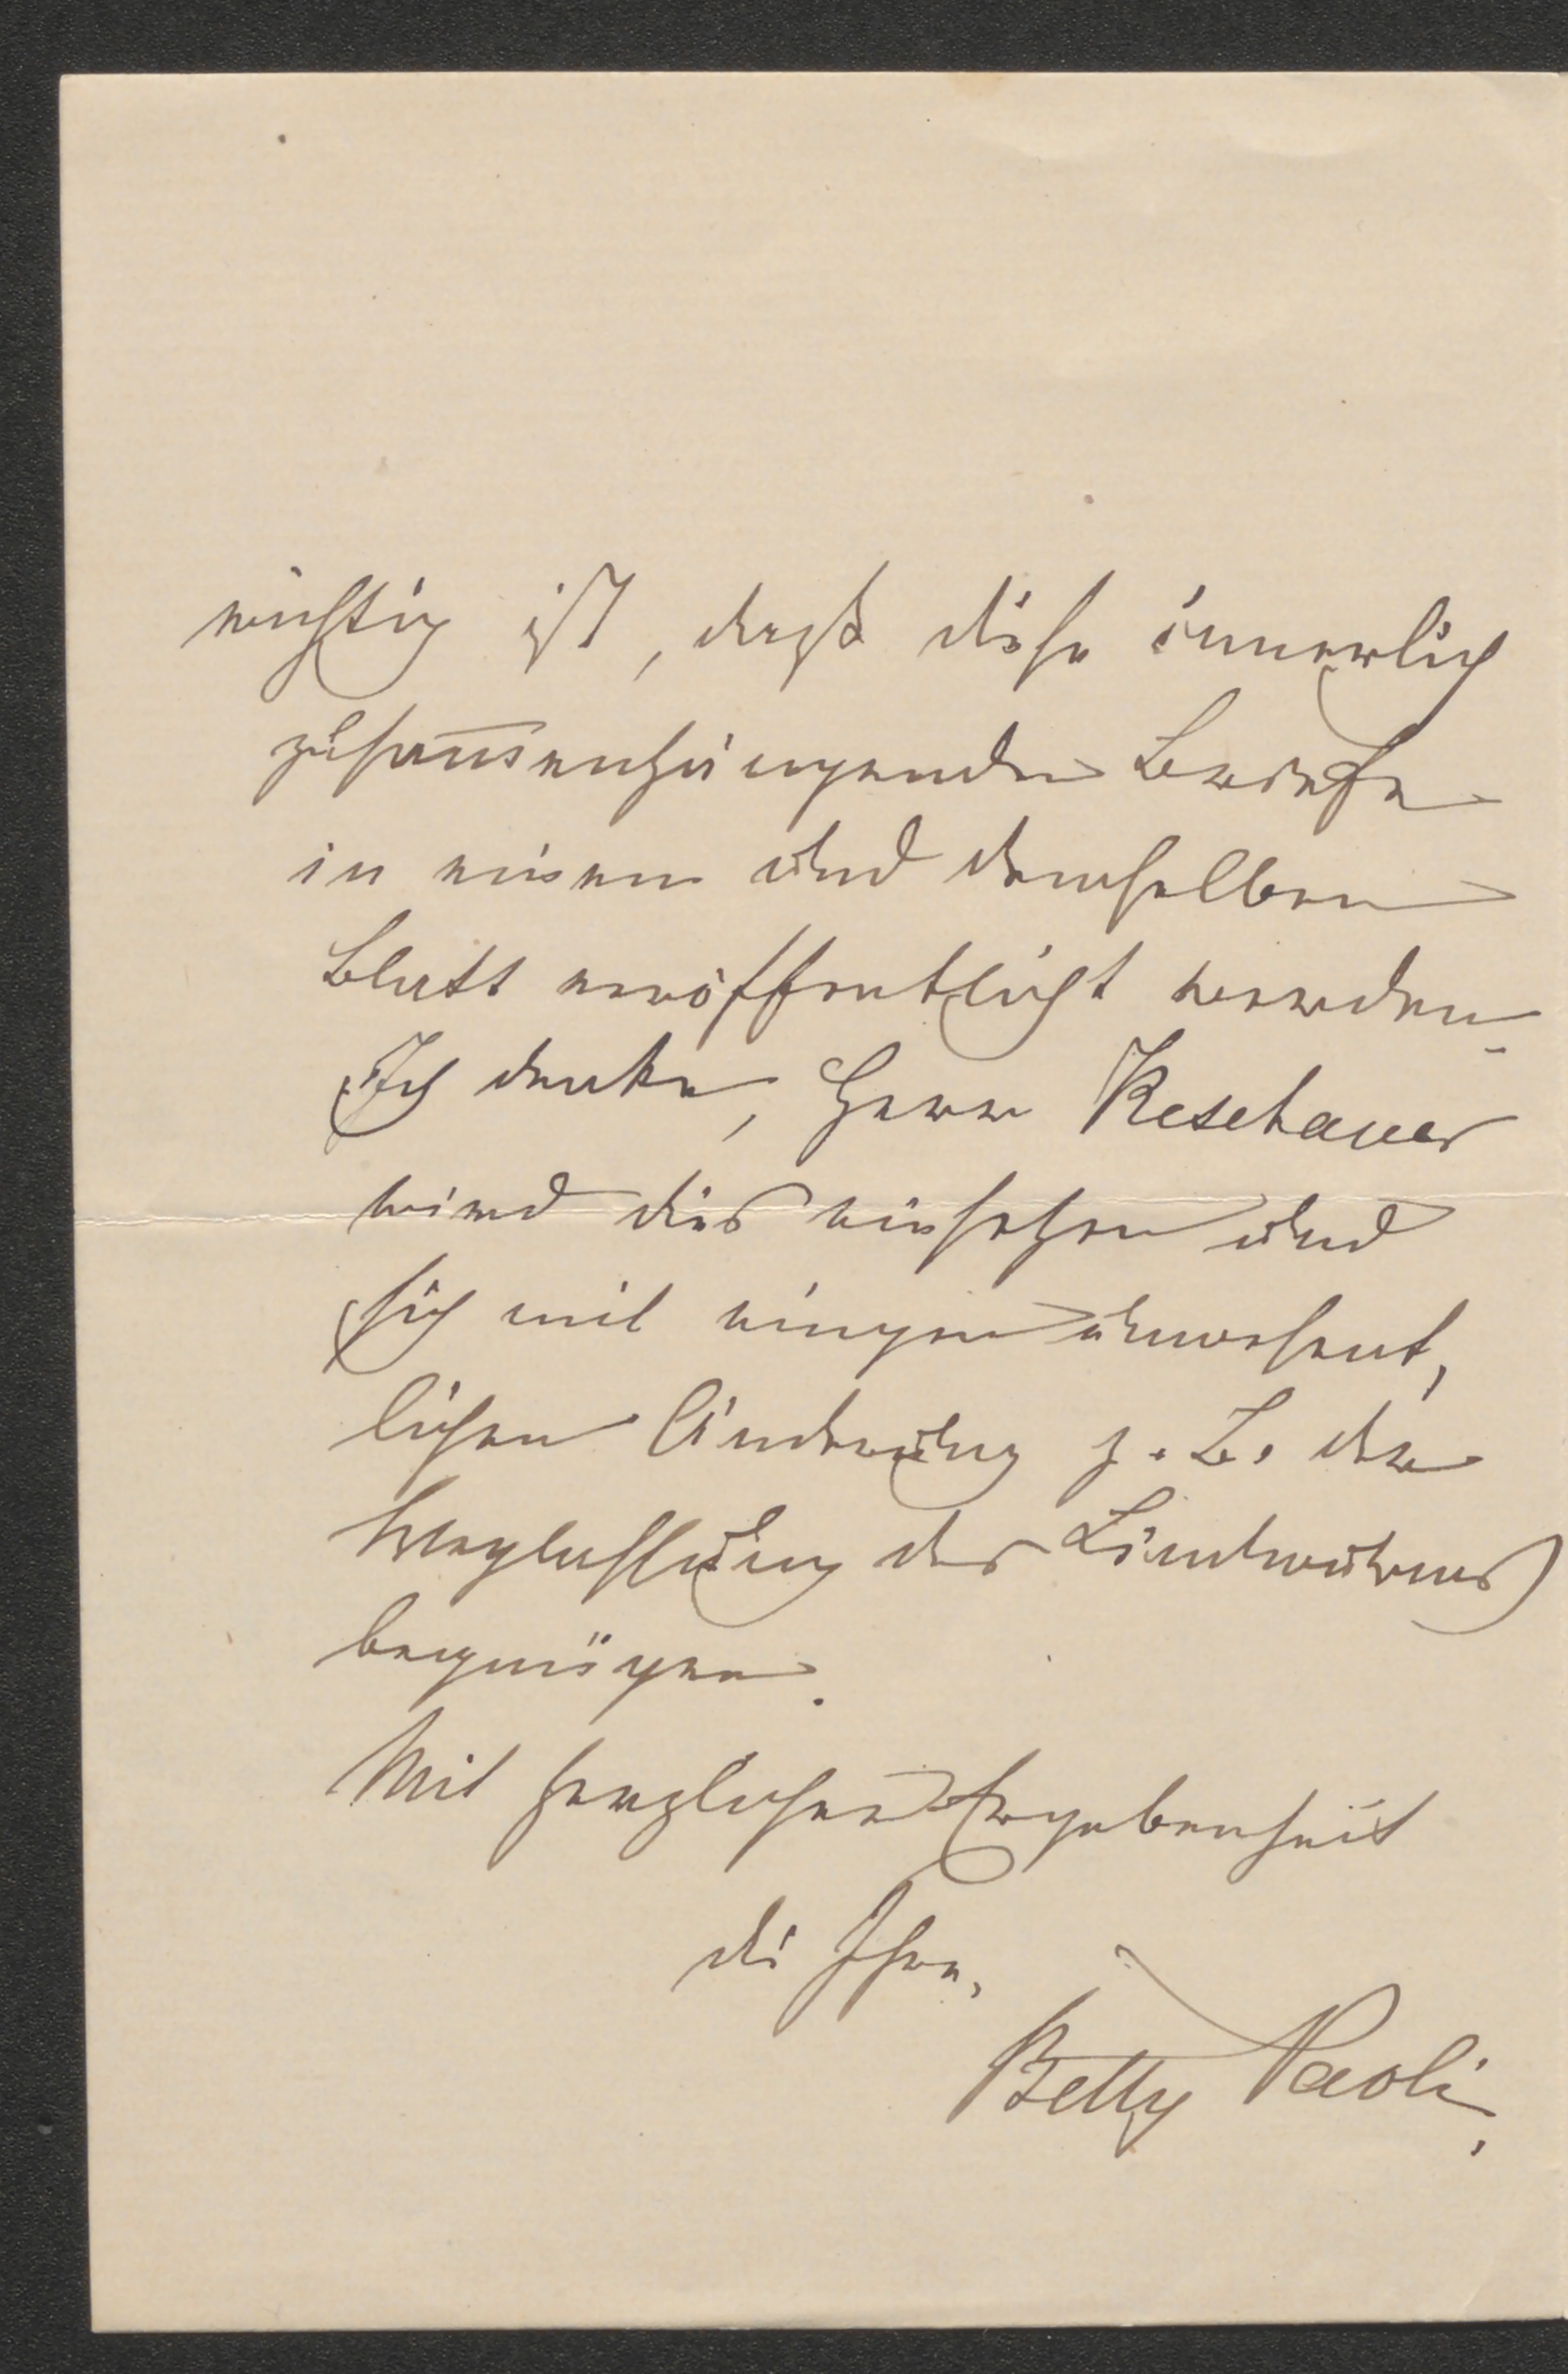 wichtig ist, daß diese innerlich
zusam̅enhängenden Briefe
in einem und demselben
Blatt veröffentlicht werden.
Ich denke, Herr Reschauer
wird dies einsehen und
sich mit einer unwesent,
lichen Änderung z. B. der
Weglassung des Lindwurms
begnügen.
Mit herzlicher Ergebenheit
die Ihre,
Betty Paoli.